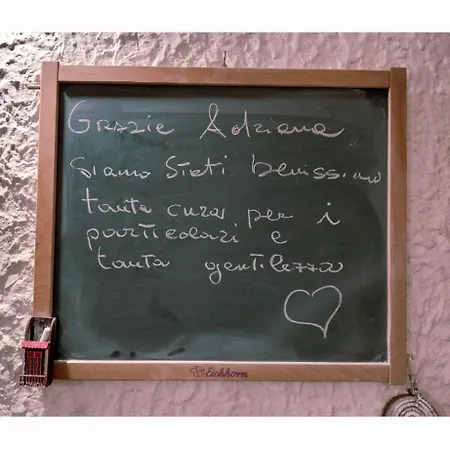 Grazie Adriana
Siamo Stati benissimo
tanta cura per i
particolari e
tanta gentilezza
Eichhorn